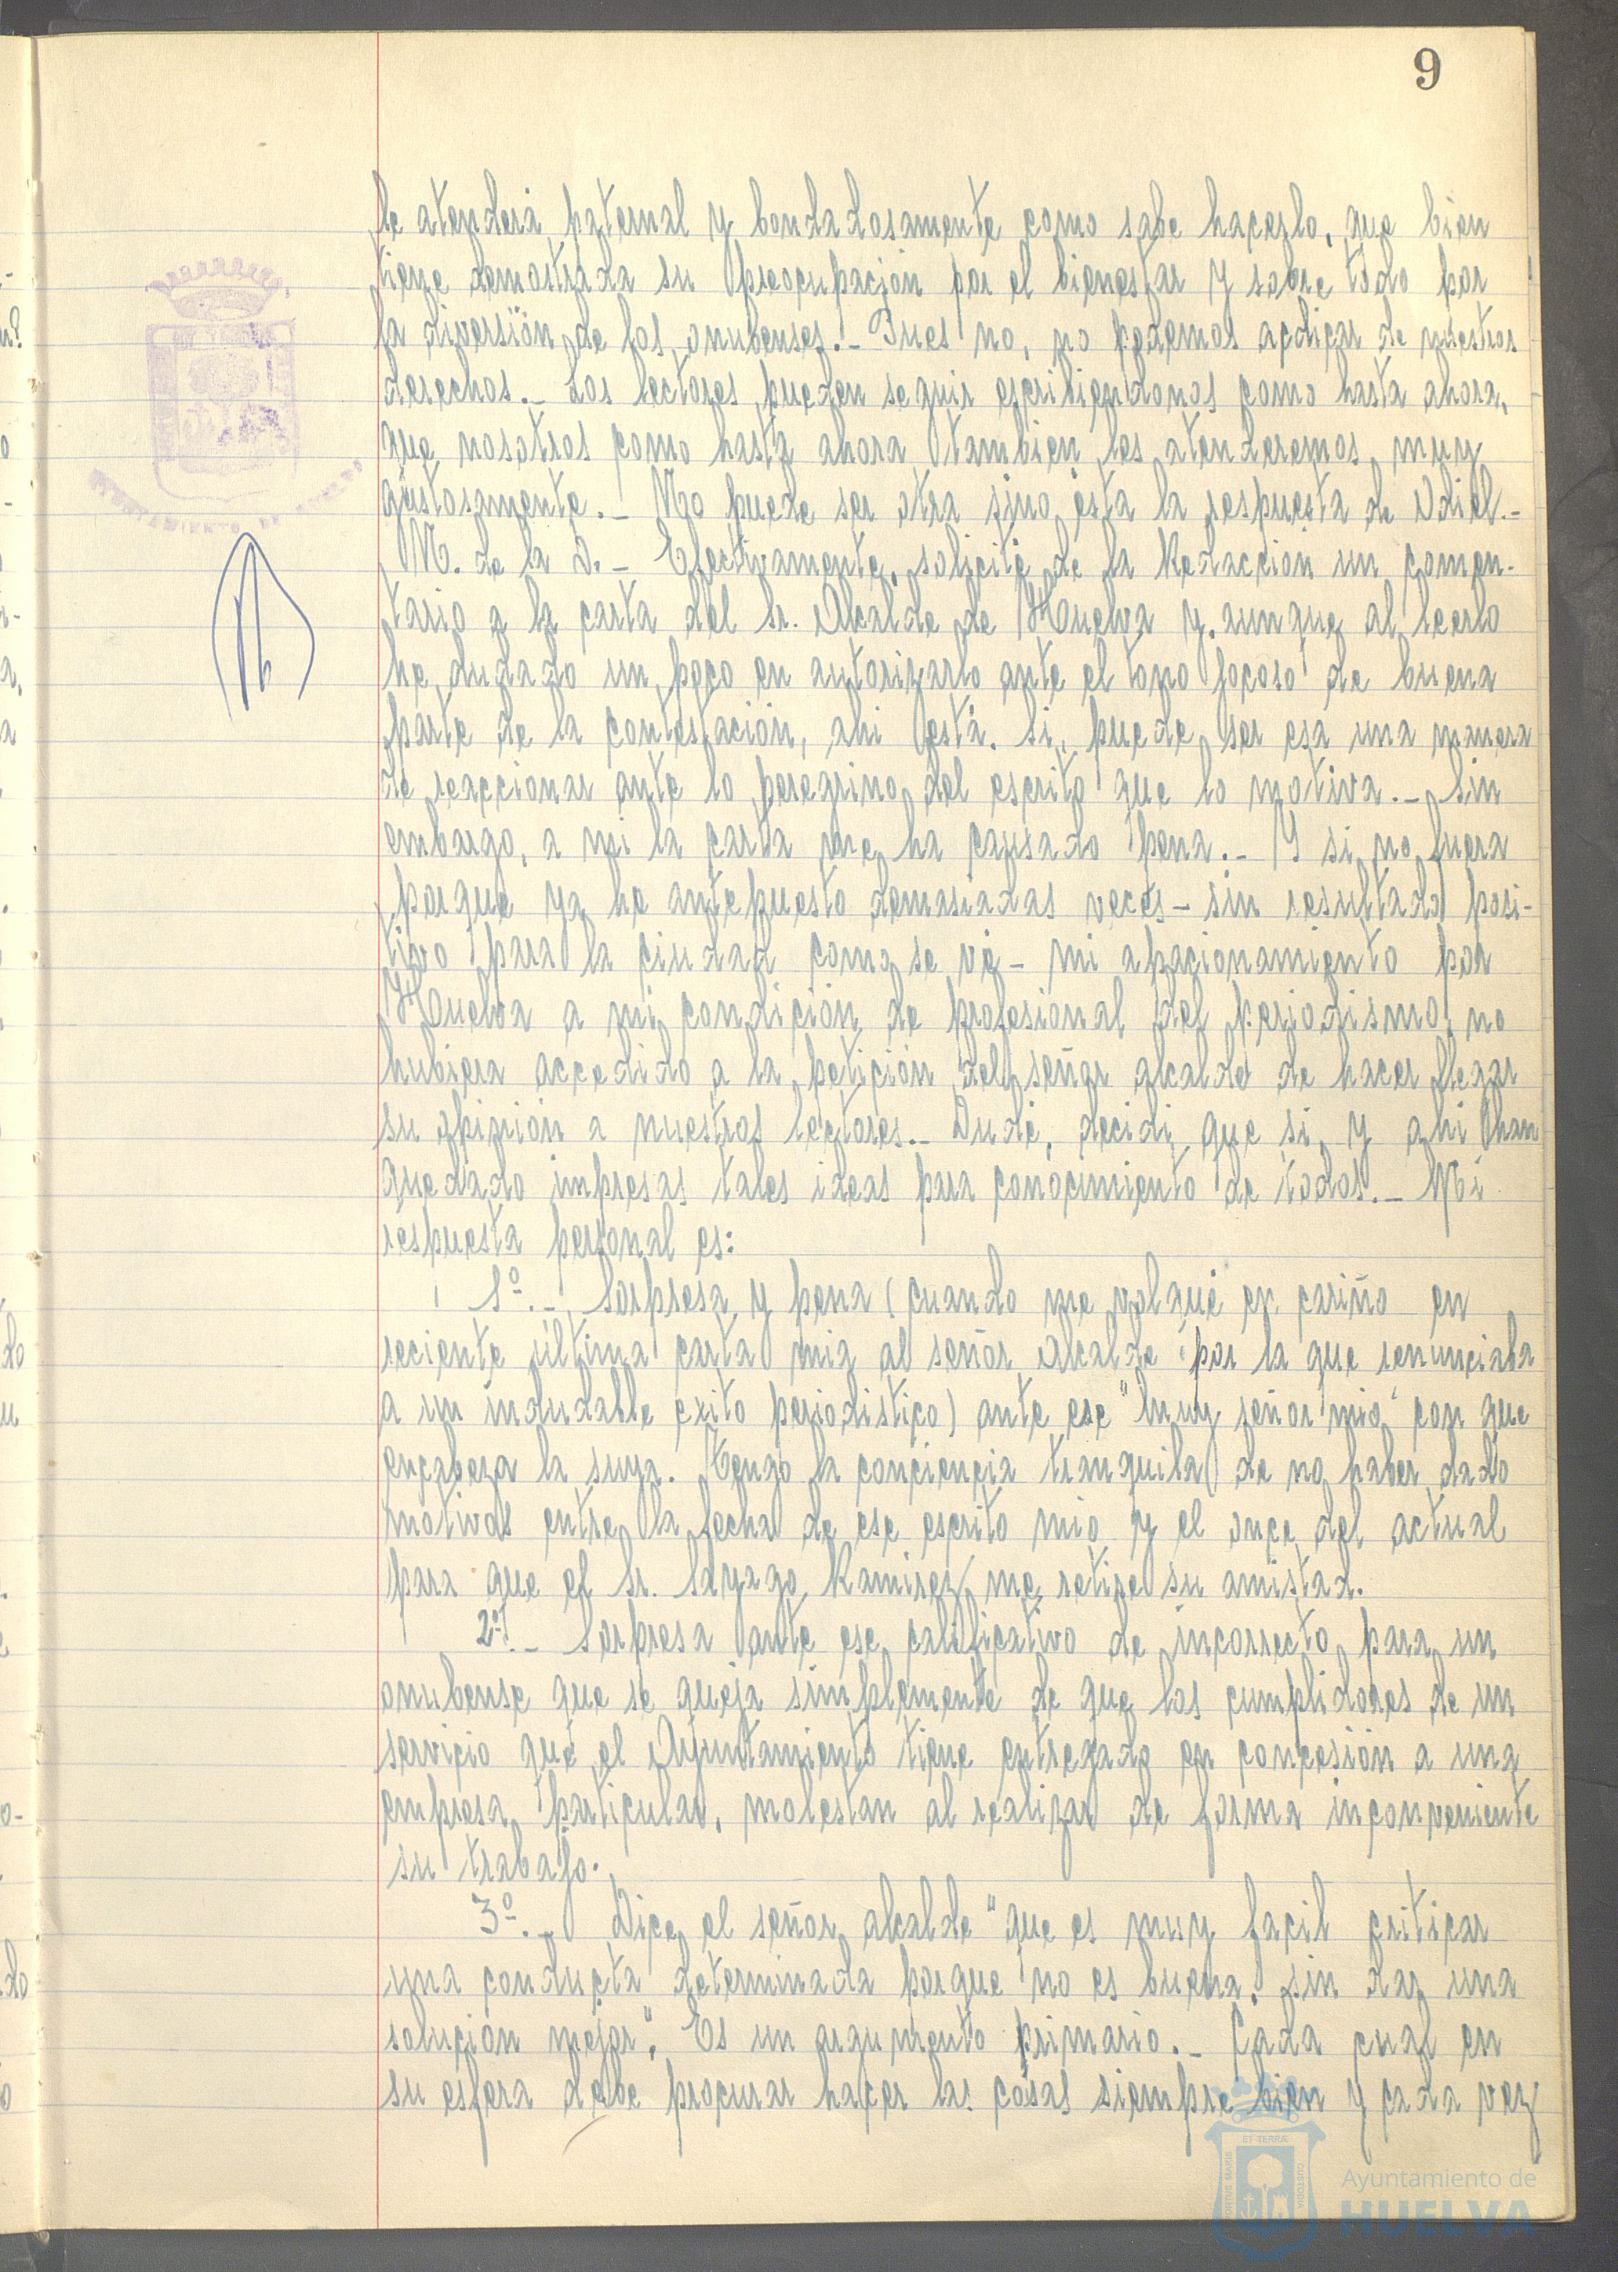 9
le atenderá paternal y bondadosamente como sabe hacerlo, que bien
tiene demostrada su preocupación por el bienestar y sobre todo por
la diversión de los onubenses.- Pues no, no podemos abdicar de nuestros
derechos.- Los lectores pueden seguir escribiendonos como hasta ahora,
que nosotros como hasta ahora tambien les atenderemos muy
gustosamente.- No puede ser otra sino ésta la respuesta de Odiel.-
N. de la D.- Efectivamente, solicité de la Redacción un comen-
tario a la carta del Sr. Alcalde de Huelva y, aunque al leerlo
he dudado un poco en autorizarlo ante el tono jocoso de buena
parte de la contestación, ahi está. Si, puede ser esa una manera
de reaccionar ante lo peregrino del escrito que lo motiva.- Sin
embargo, a mi la carta me ha causado pena.- Y si no fuera
porque ya he antepuesto demasiadas veces - sin resultado posi-
tivo para la ciudad como se vé - mi apacionamiento por
Huelva a mi condición de profesional del periodismo, no
hubiera accedido a la petición del señor alcalde de hacer llegar
su opinión a nuestros lectores.- Dudé, decidi que si, y ahi han
quedado impresas tales ideas para conocimiento de todos.- Mi
respuesta personal es:
1º.- Sorpresa y pena (cuando me volqué en cariño en
reciente última carta mia al señor Alcalde por la que renunciaba
a un indudable exito periodistico) ante ese "Muy señor mio" con que
encabeza la suya. Tengo la conciencia tranquila de no haber dado
motivos entre la fecha de ese escrito mio y el once del actual
para que el Sr. Sayago Ramirez, me retire su amistad.
2º.- Sorpresa ante ese calificativo de incorrecto para un
onubense que se queja simplemente de que los cumplidores de un
servicio que el Ayuntamiento tiene entregado en concesión a una
empresa particular, molestan al realizar de forma inconveniente
su trabajo.
3º.- Dice el señor alcalde "que es muy facil criticar
una conducta determinada porque no es buena, sin dar una
solución mejor". Es un argumento primario.- Cada cual en
su esfera debe procurar hacer las cosas siempre bien y cada vez
Ayuntamiento de
HUELVA